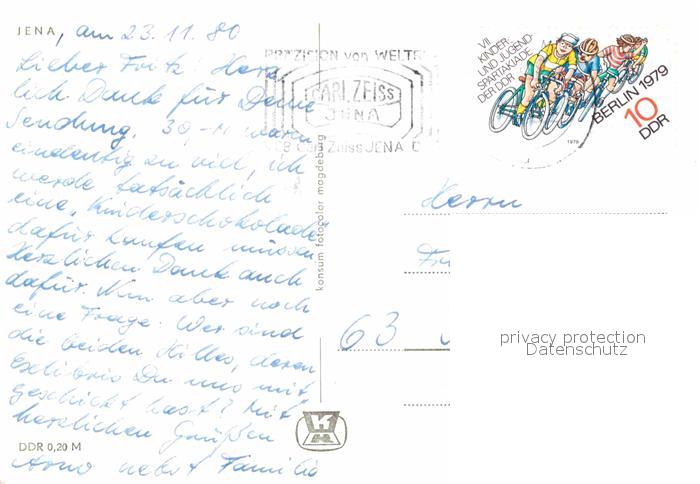 JENA, am 23.11.80
Lieber Fritz. Herz
lich Dank für Deine
Sendung, 30,-M waren
eindeutig zu viel, ich
werde tatsächlich
eine, Kinderschokolade"
dafür kaufen müssen
Herzlichen Dank auch
dafür. Nun aber noch
eine Frage: Wer sind
die beiden Hilles, deren
Exlibris Du uns mit
geschickt hast? Mit
herzlichen Grüßen
Arno nebst Familie
DDR 0,20 M
konsum fotocolor magdeburg
PRÄZISION von WELTR
CARL ZEISS
JENA
VEB Carl Zeiss JENA D
VII.
KINDER-
UND JUGEND-
SPARTAKIADE
DER DDR
BERLIN 1979
10
DDR
1979
Herrn
63
privacy protection
Datenschutz